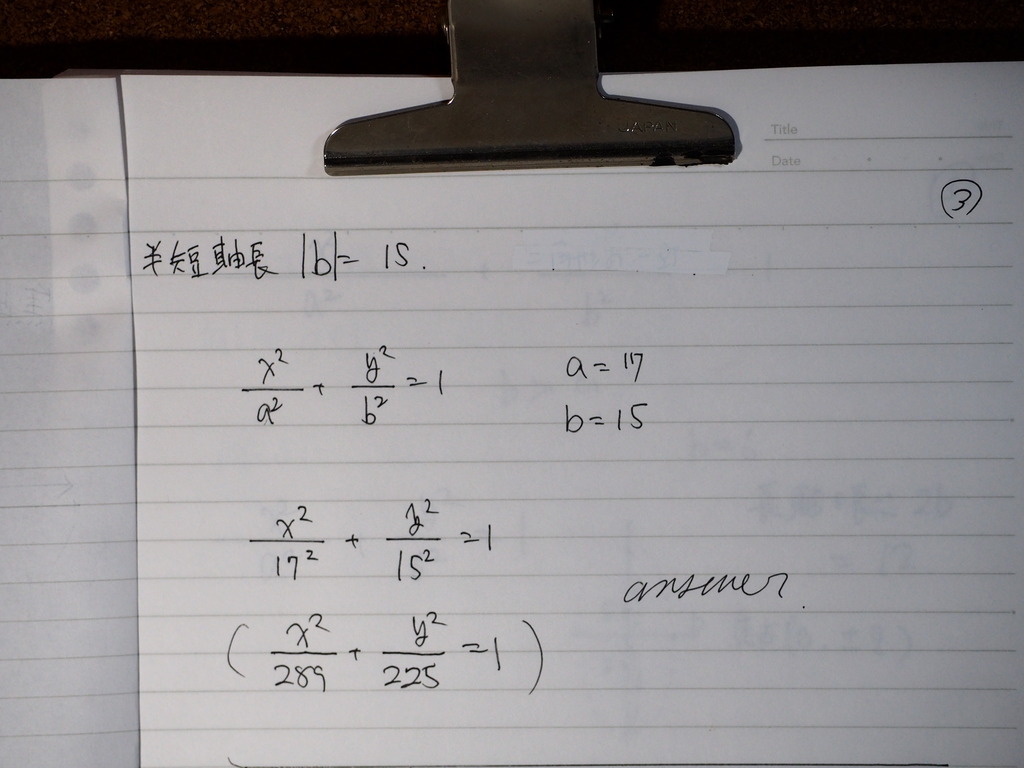 JAPAN
Title
Date
③
半短軸長 |b| = 15.
x²/a² + y²/b² = 1 a = 17
b = 15
x²/17² + y²/15² = 1
answer.
( x²/289 + y²/225 = 1 )